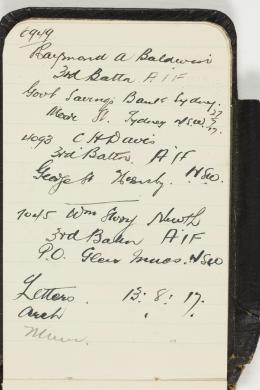 6949
Raymond A Baldwin
3rd Battn A.I.F
Govt Savings Bank Sydney
Moore St. Sydney N.S.W.
4093 C H Davis
3rd Battn A.I.F
George St Hornsby. N.S.W.
7045 Wm Story North
3rd Battn A.I.F
P.O. Glen Innes. N.S.W
Letters. 13: 8: 17.